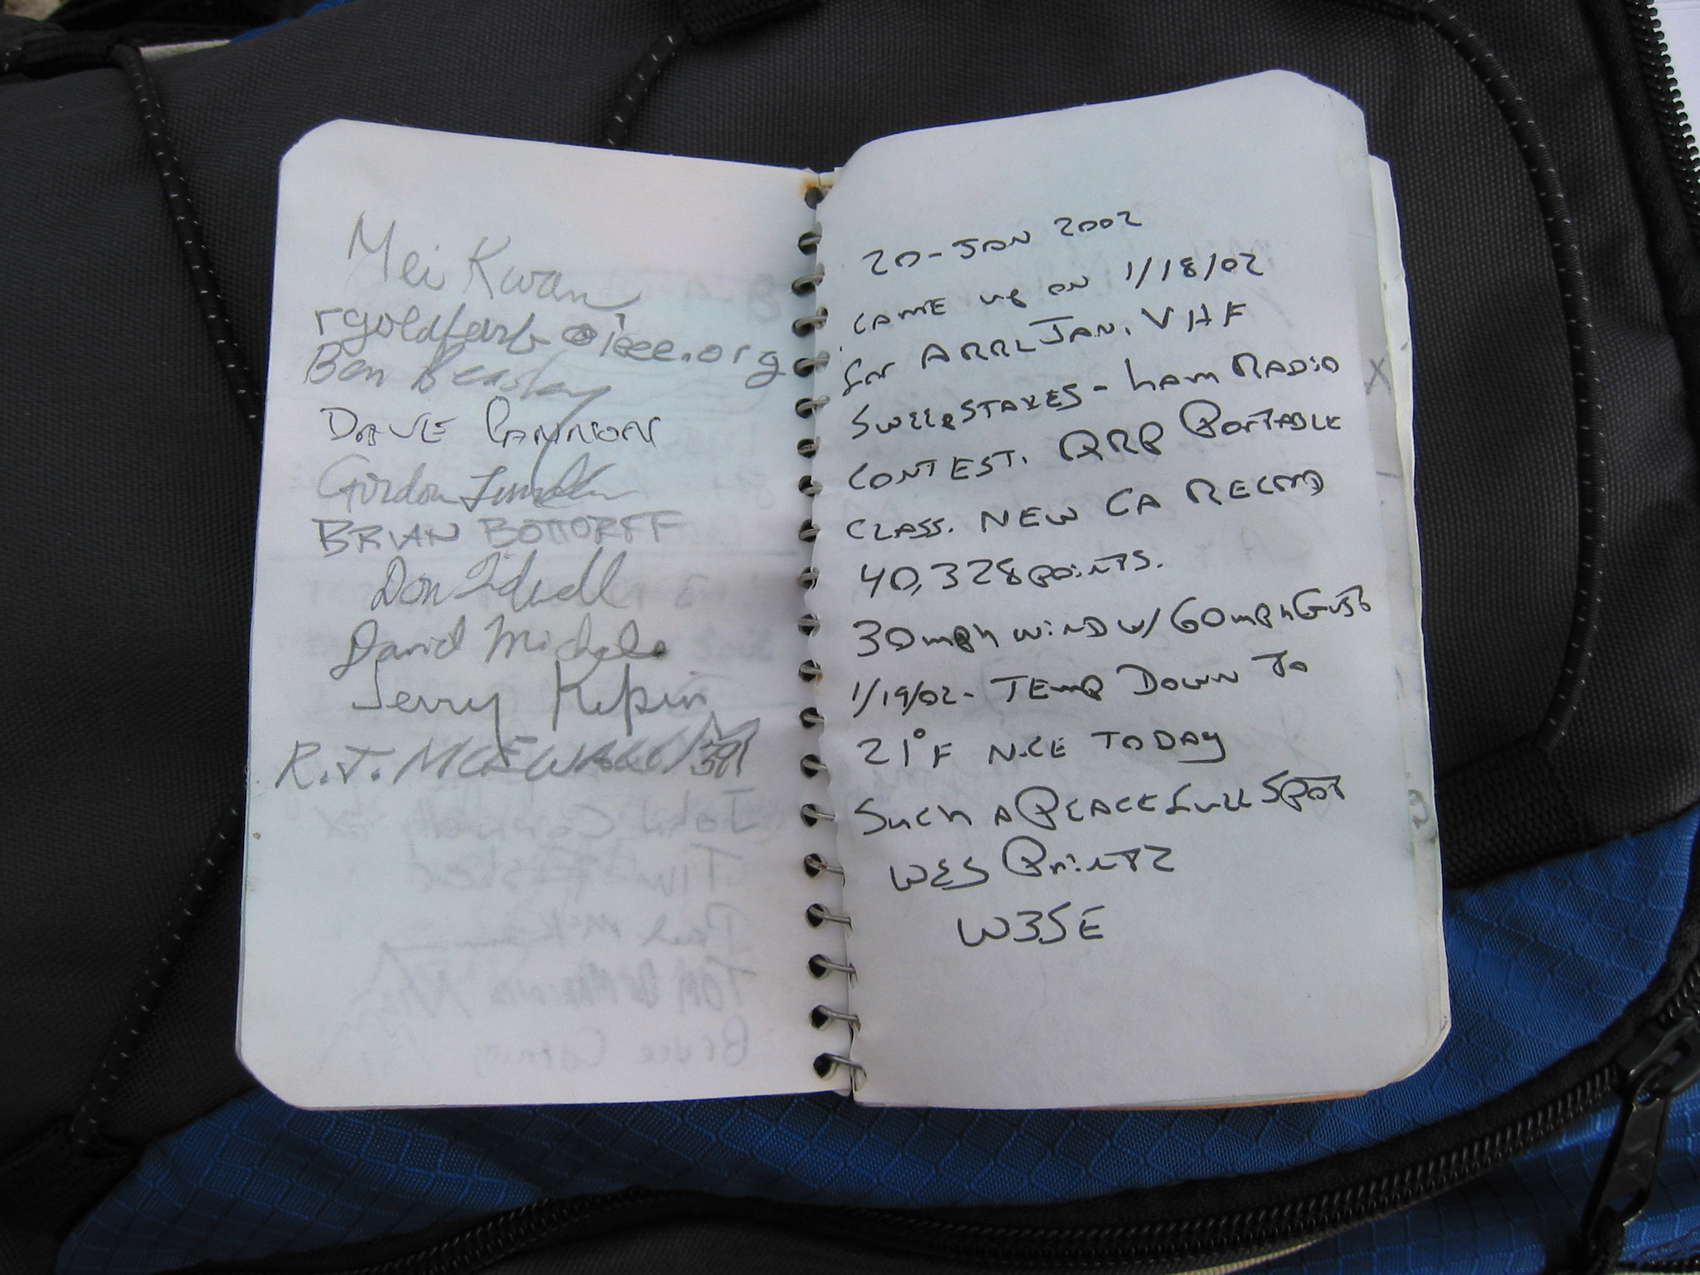 Mei Kwan
rgoldfarb@ieee.org
Ben Beasley
DAVE CANNON
Gordon
BRIAN BOTTORFF
Don Tidwell
David Michels
Jerry Kipin
R.J.
20-JAN 2002
CAME UP ON 1/18/02
for ARRL JAN. VHF
SWEEPSTAKES - HAM RADIO
CONTEST. QRP PORTABLE
CLASS. NEW CA RECORD
40,328 POINTS.
30mph WIND W/ 60mph GUSTS
1/19/02 - TEMP DOWN TO
21°F NICE TODAY
SUCH A PEACEFULL SPOT
WES PRINTZ
W3SE